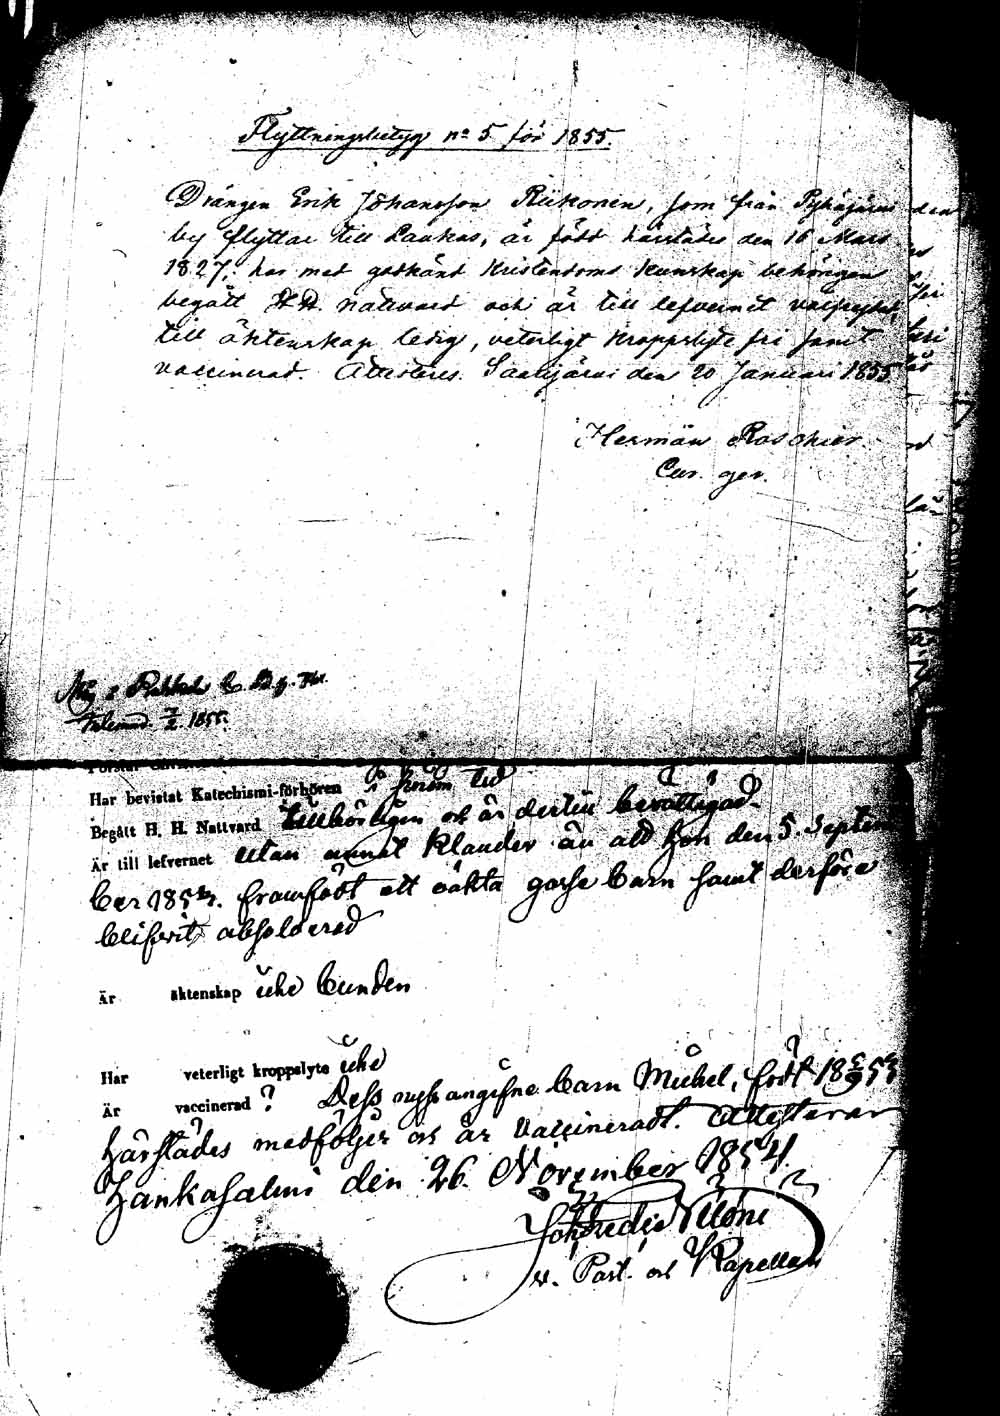 Flyttningsbetyg no 5 för 1855.
Drängen Erik Johansson Riikonen, som från Pyhäjärvi
by flyttar till Laukas, är född härstädes den 16 Mars
1827, har med godkänd Kristendoms kunskap behörigen
begått H. H. nattvard och är till lefvernet välfrejdad,
till äktenskap ledig, veterligt kroppslyte fri samt
vaccinerad. Attesteras. Saarijärvi den 20 Januari 1855
Herman Roschier.
Cur. ger.
1855.
Har bevistat Katechismi-förhören i sinom tid
Begått H. H. Nattvard tillbörligen och är dertill berättigad.
Är till lefvernet utan annat klander än att hon den 5. Septem
ber 1853. framfödt ett oäkta gosse barn samt derföre
blifvit absolverad
Är äktenskap icke bunden
Har veterligt kroppslyte icke
Är vaccinerad? Dess nyss angifne barn Michel, födt
härstädes medföljer och är vaccineradt. Attesterar
Hankasalmi den 26. November 1854.
v. Past. och Kapellan